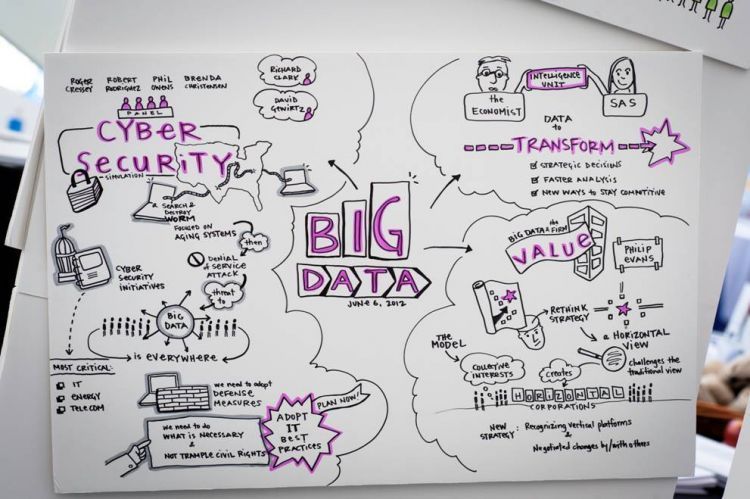 ROGER CRESSEY
ROBERT RODRIGUEZ
PHIL OWENS
BRENDA CHRISTENSEN
PANEL
RICHARD CLARK
DAVID GEWIRTZ
CYBER
SECURITY
SIMULATION
A SEARCH &
DESTROY
WORM
FOCUSED ON
AGING SYSTEMS
then
DENIAL
of SERVICE
ATTACK
threat
to
CYBER
SECURITY
INITIATIVES
BIG
DATA
is EVERYWHERE
MOST CRITICAL:
IT
ENERGY
TELECOM
we need to adopt
DEFENSE
MEASURES
We need to do
WHAT IS NECESSARY
&
NOT TRAMPLE CIVIL RIGHTS
ADOPT
IT
BEST
PRACTICES
PLAN NOW!
BIG
DATA
JUNE 6, 2012
the
ECONOMIST
INTELLIGENCE
UNIT
SAS
DATA
to
TRANSFORM
STRATEGIC DECISIONS
FASTER ANALYSIS
NEW WAYS to STAY COMPETITIVE
the
BIG DATA & FIRM
VALUE
PHILIP
EVANS
RETHINK
STRATEGY
a HORIZONTAL
VIEW
CHALLENGES THE
traditional view
THE
MODEL
COLLECTIVE
INTERESTS
creates
HORIZONTAL
CORPORATIONS
NEW
STRATEGY : Recognizing vertical platforms
&
Negotiated changes by/with others